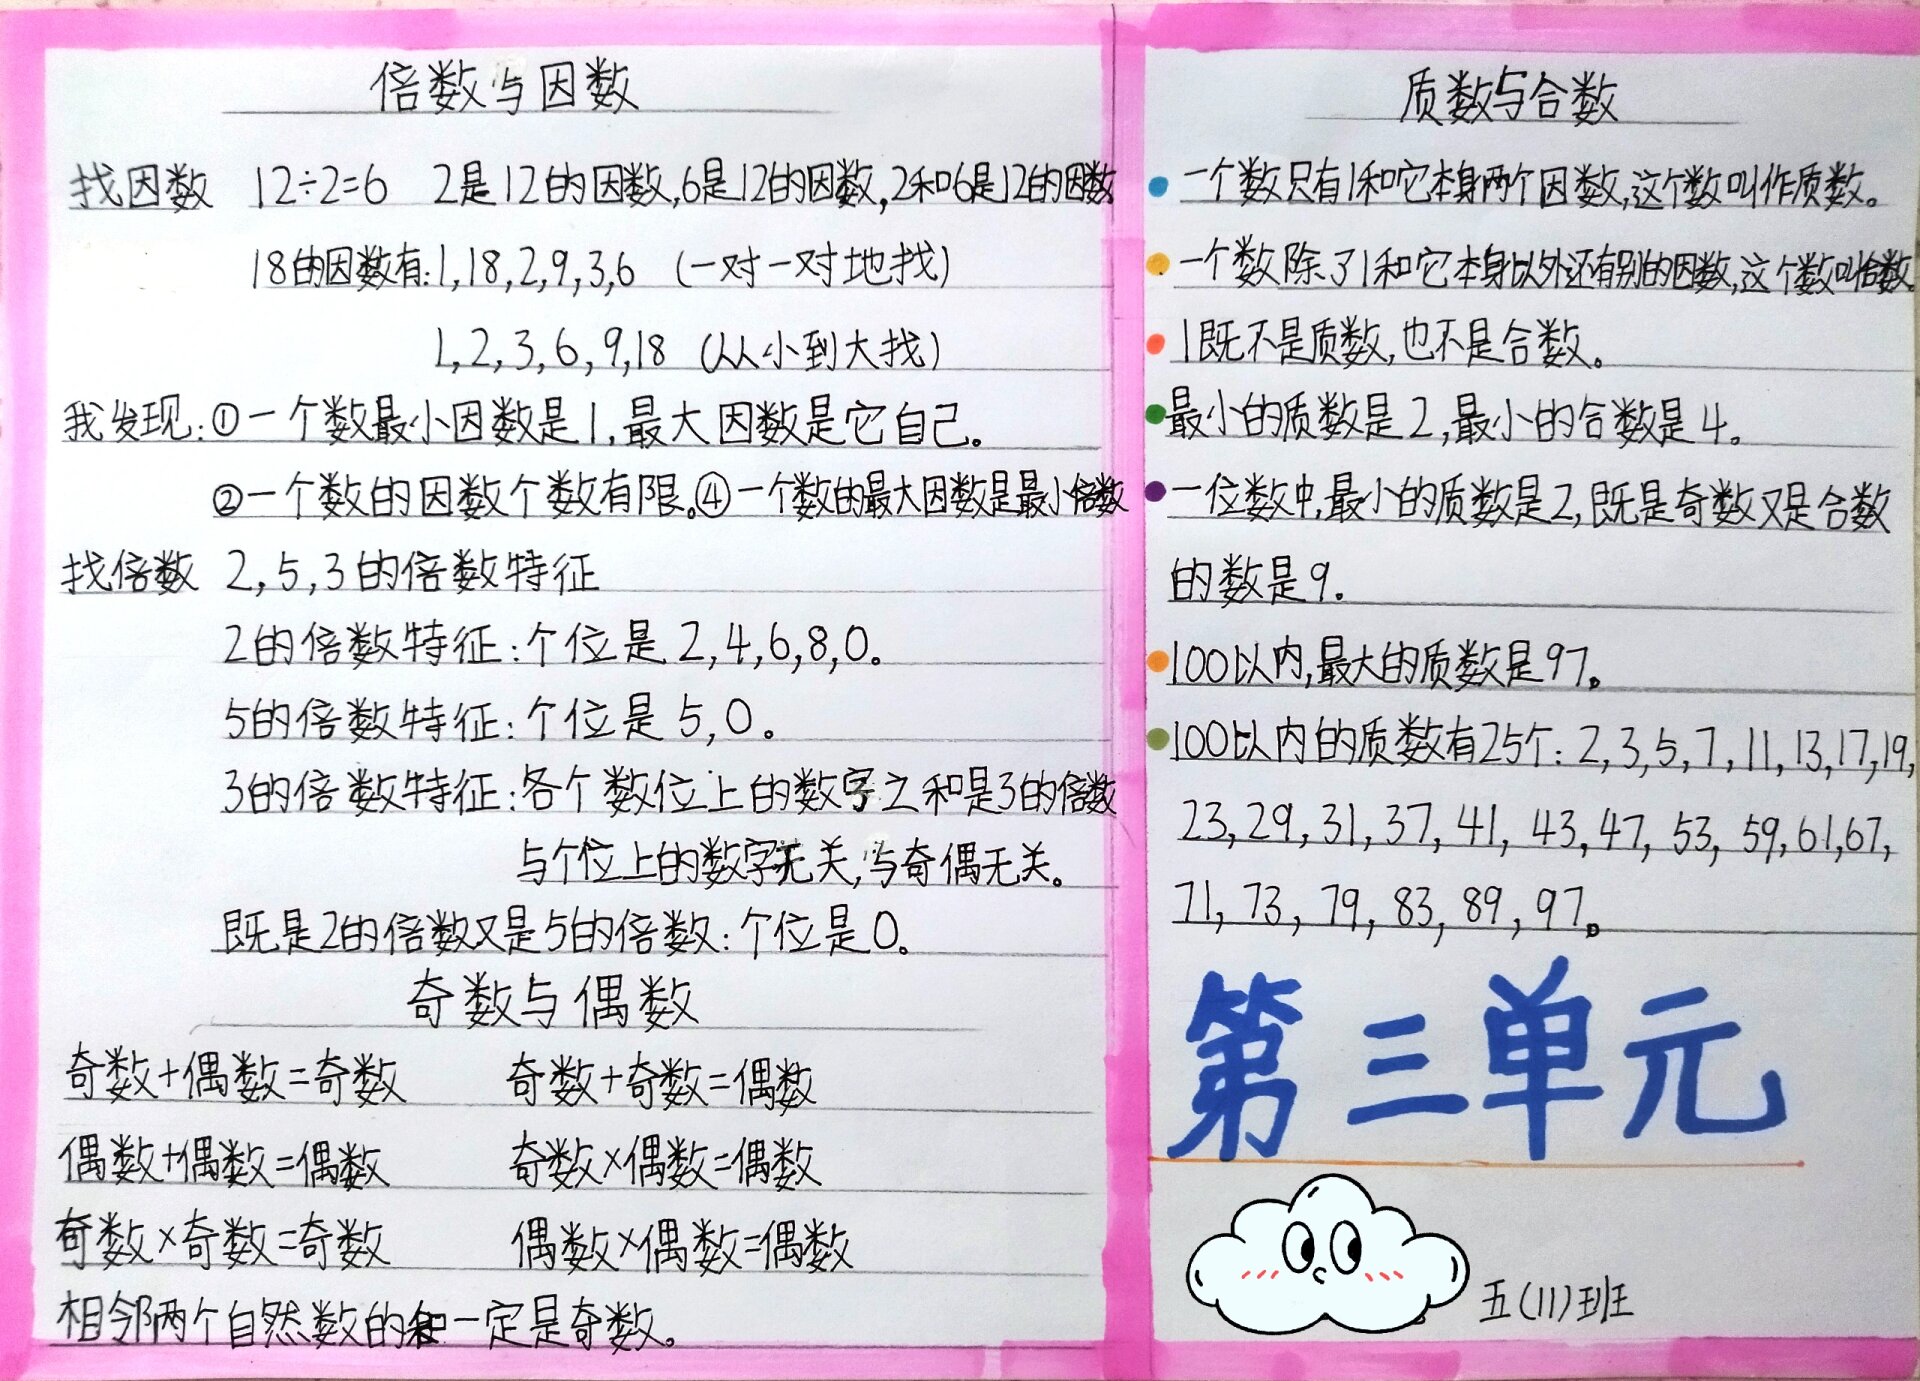 倍数与因数
找因数 12÷2=6 2是12的因数,6是12的因数,2和6是12的因数
18的因数有:1,18,2,9,3,6 (一对一对地找)
1,2,3,6,9,18 (从小到大找)
我发现:①一个数最小因数是1,最大因数是它自己。
②一个数的因数个数有限。④一个数的最大因数是最小倍数
找倍数 2,5,3的倍数特征
2的倍数特征:个位是2,4,6,8,0。
5的倍数特征:个位是5,0。
3的倍数特征:各个数位上的数字之和是3的倍数
与个位上的数字无关,与奇偶无关。
既是2的倍数又是5的倍数:个位是0。
奇数与偶数
奇数+偶数=奇数 奇数+奇数=偶数
偶数+偶数=偶数 奇数×偶数=偶数
奇数×奇数=奇数 偶数×偶数=偶数
相邻两个自然数的和一定是奇数。
质数与合数
一个数只有1和它本身两个因数,这个数叫作质数。
一个数除了1和它本身以外还有别的因数,这个数叫合数。
1既不是质数,也不是合数。
最小的质数是2,最小的合数是4。
一位数中,最小的质数是2,既是奇数又是合数
的数是9.
100以内,最大的质数是97。
100以内的质数有25个:2,3,5,7,11,13,17,19,
23,29,31,37,41,43,47,53,59,61,67,
71,73,79,83,89,97。
第三单元
五(11)班